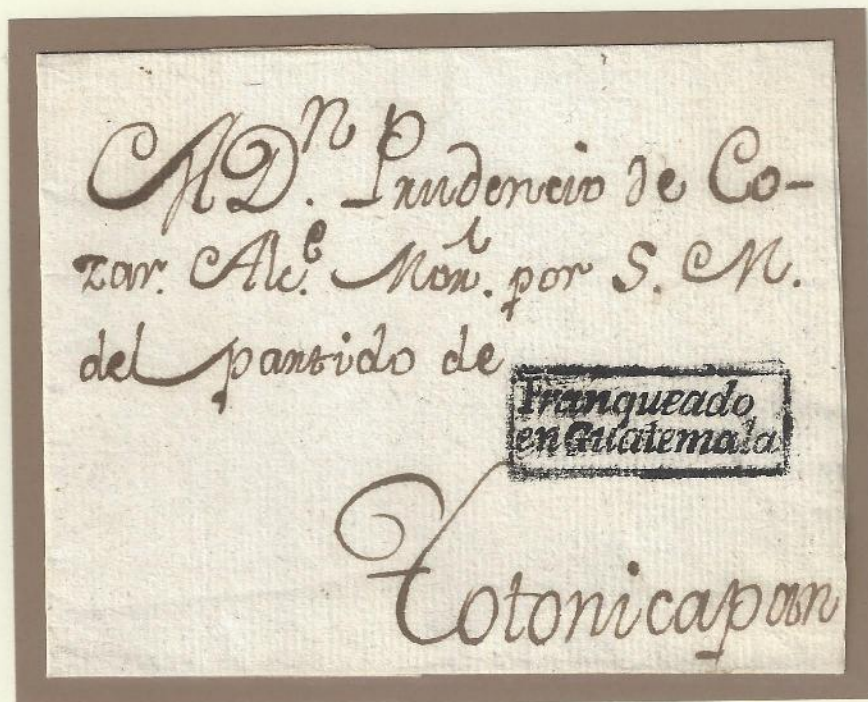 A Dn. Prudencio de Co-
zar. Alce. Morl. por S. M.
del partido de
Franqueado
en Guatemala
Totonicapan